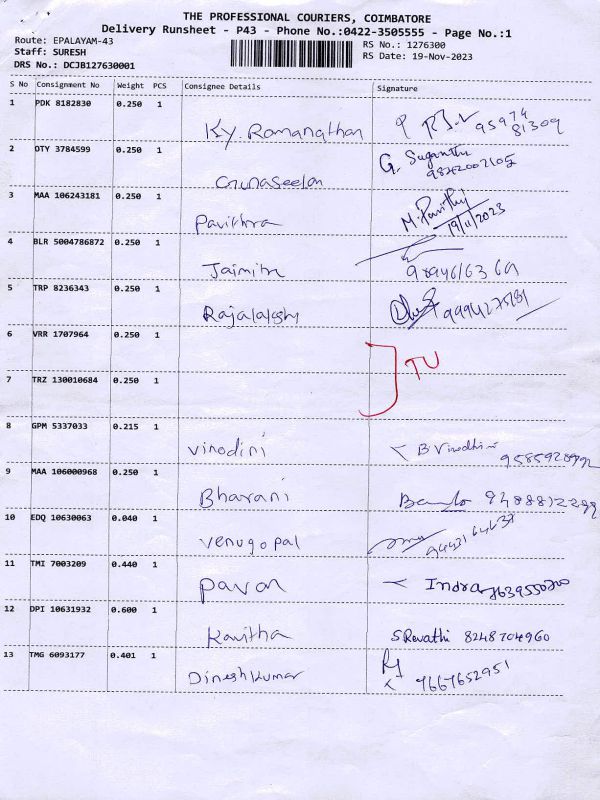 THE PROFESSIONAL COURIERS, COIMBATORE
Delivery Runsheet - P43 - Phone No.:0422-3505555 - Page No.:1
Route: EPALAYAM-43
Staff: SURESH
DRS No.: DCJB127630001
RS No.: 1276300
RS Date: 19-Nov-2023
S No Consignment No Weight PCS Consignee Details Signature
1 PDK 8182830 0.250 1
Ky. Romanathan 95974
81309
2 DTY 3784599 0.250 1
Gunaseelan G. Suganthi
3 MAA 106243181 0.250 1
Pavithra M. Pavithij
19/11/2023
4 BLR 5004786872 0.250 1
Jaimitra
5 TRP 8236343 0.250 1
Rajalakshi
6 VRR 1707964 0.250 1
TU
7 TRZ 130010684 0.250 1
8 GPM 5337033 0.215 1
Vinodini B Vinodhini
9 MAA 106000968 0.250 1
Bharani
10 EDQ 10630063 0.040 1
Venugopal
11 TMI 7003209 0.440 1
Pavan Indra
12 DPI 10631932 0.600 1
Kavitha S Revathi 8248704960
13 TMG 6093177 0.401 1
Dinesh Kumar 7667652951